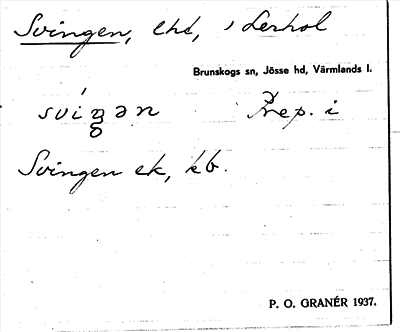 Svingen, lht, i Lerhol
Brunskogs sn, Jösse hd, Värmlands l.
svíŋən Prep. i
Svingen ek, kb.
P. O. GRANÉR 1937.